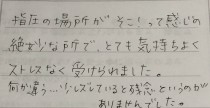 指圧の場所が そこ！って感じの
絶妙な所で、とても気持ちよく
ストレスなく受けられました。
何か違う…少しズレていると残念というのが
ありませんでした。